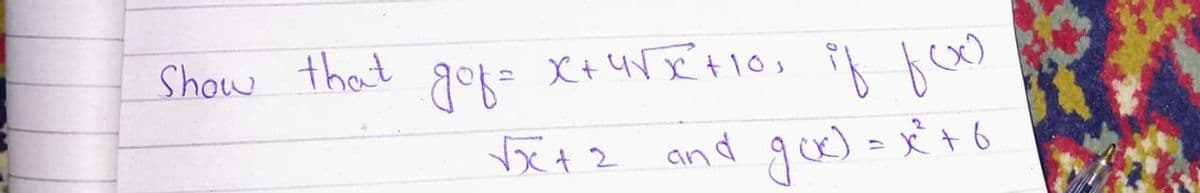 Show that gof = x+4√x+10, if f(x)
√x+2 and g(x) = x²+6